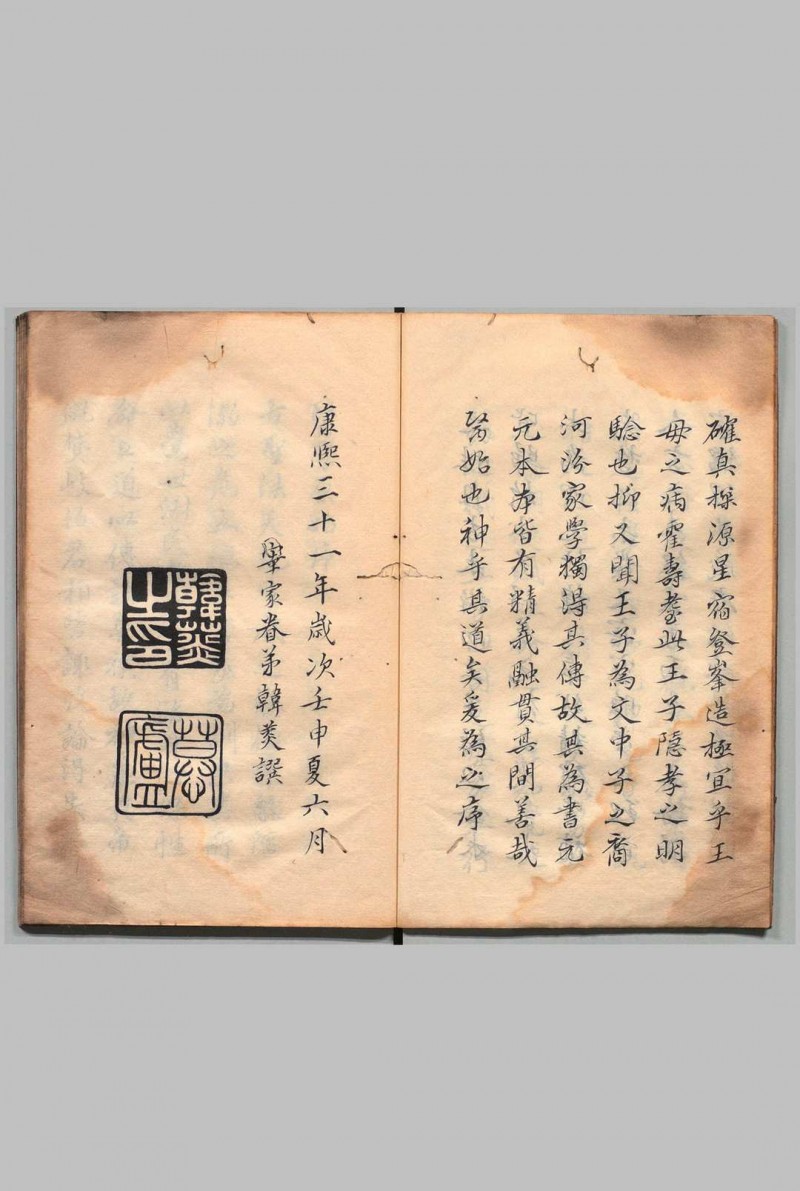 確真探源星宿登峯造極宜乎王
母之病霍壽耄此王子隱孝之明
驗也抑又聞王子為文中子之裔
河汾家學獨得其傳故其為書元
元本本皆有精義融貫其間善哉
始也神乎其道矣爰為之序
康熙三十一年歲次壬申夏六月
年家眷弟韓菼譔
韓菼之印
慕廬